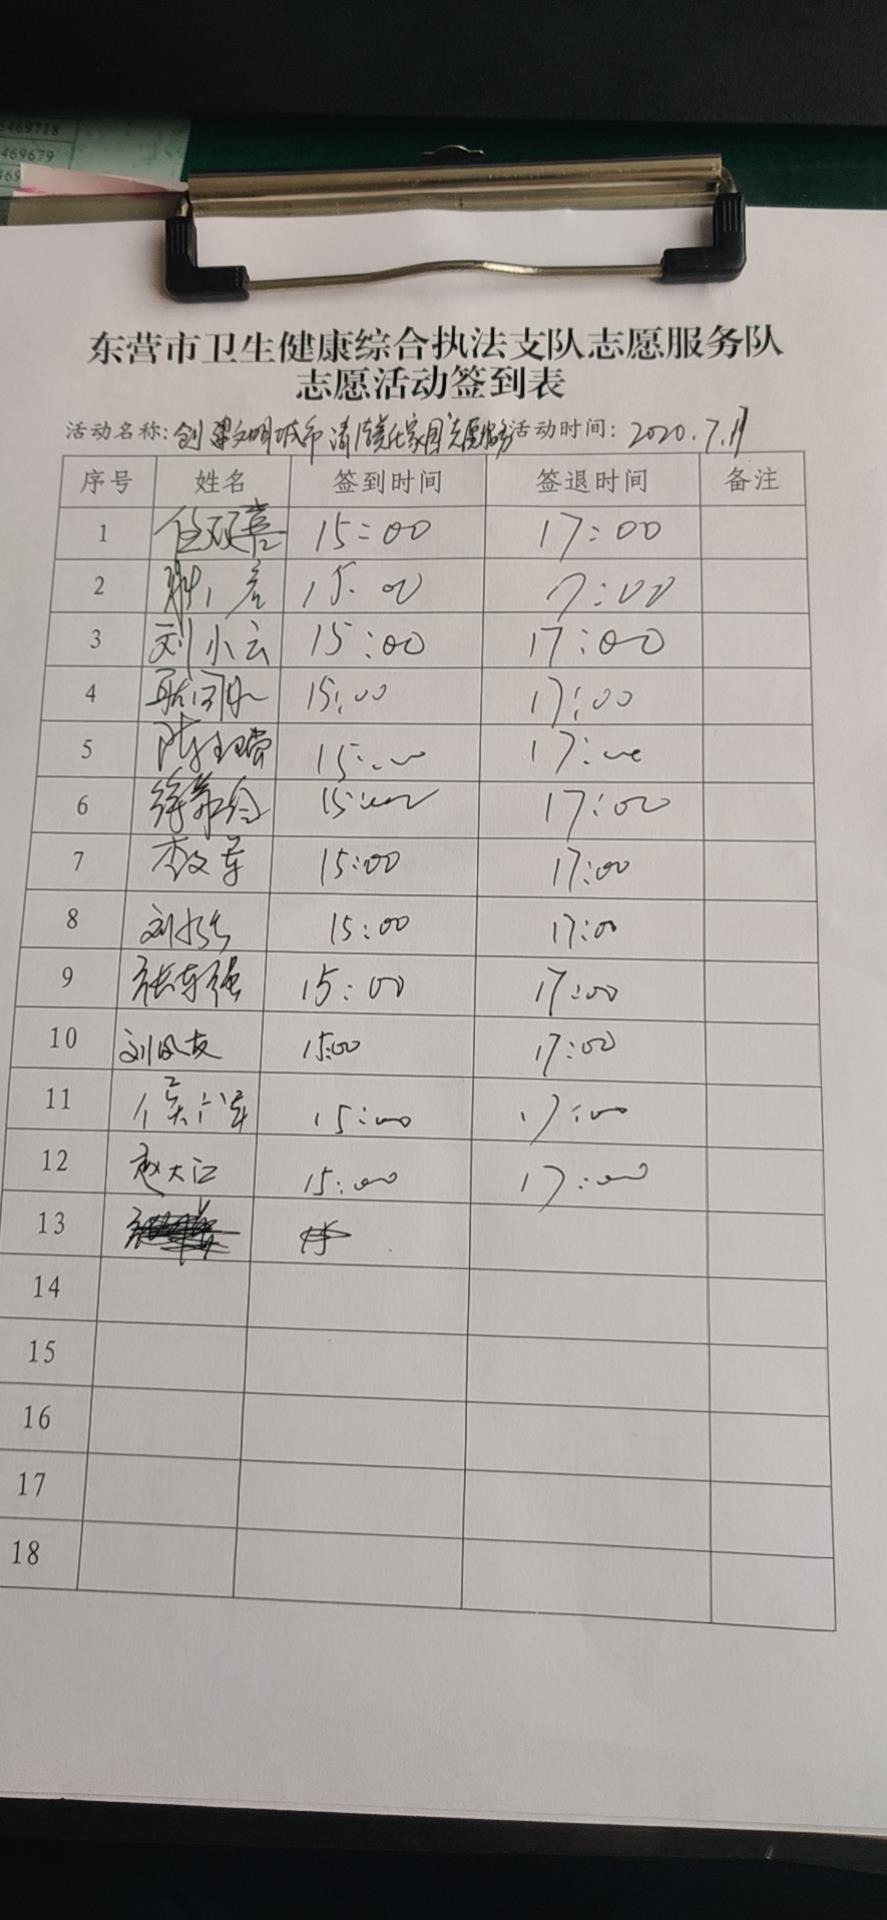 6469718
469679
469
东营市卫生健康综合执法支队志愿服务队
志愿活动签到表
活动名称: 创建文明城市清洁美化家园志愿服务 活动时间: 2020.7.
序号 姓名 签到时间 签退时间 备注
1 15:00 17:00
2 15:00 17:00
3 刘小云 15:00 17:00
4 15:00 17:00
5 15:00 17:00
6 15:00 17:00
7 李文军 15:00 17:00
8 刘 15:00 17:00
9 张东强 15:00 17:00
10 刘凤友 15:00 17:00
11 15:00 17:00
12 赵大江 15:00 17:00
13
14
15
16
17
18